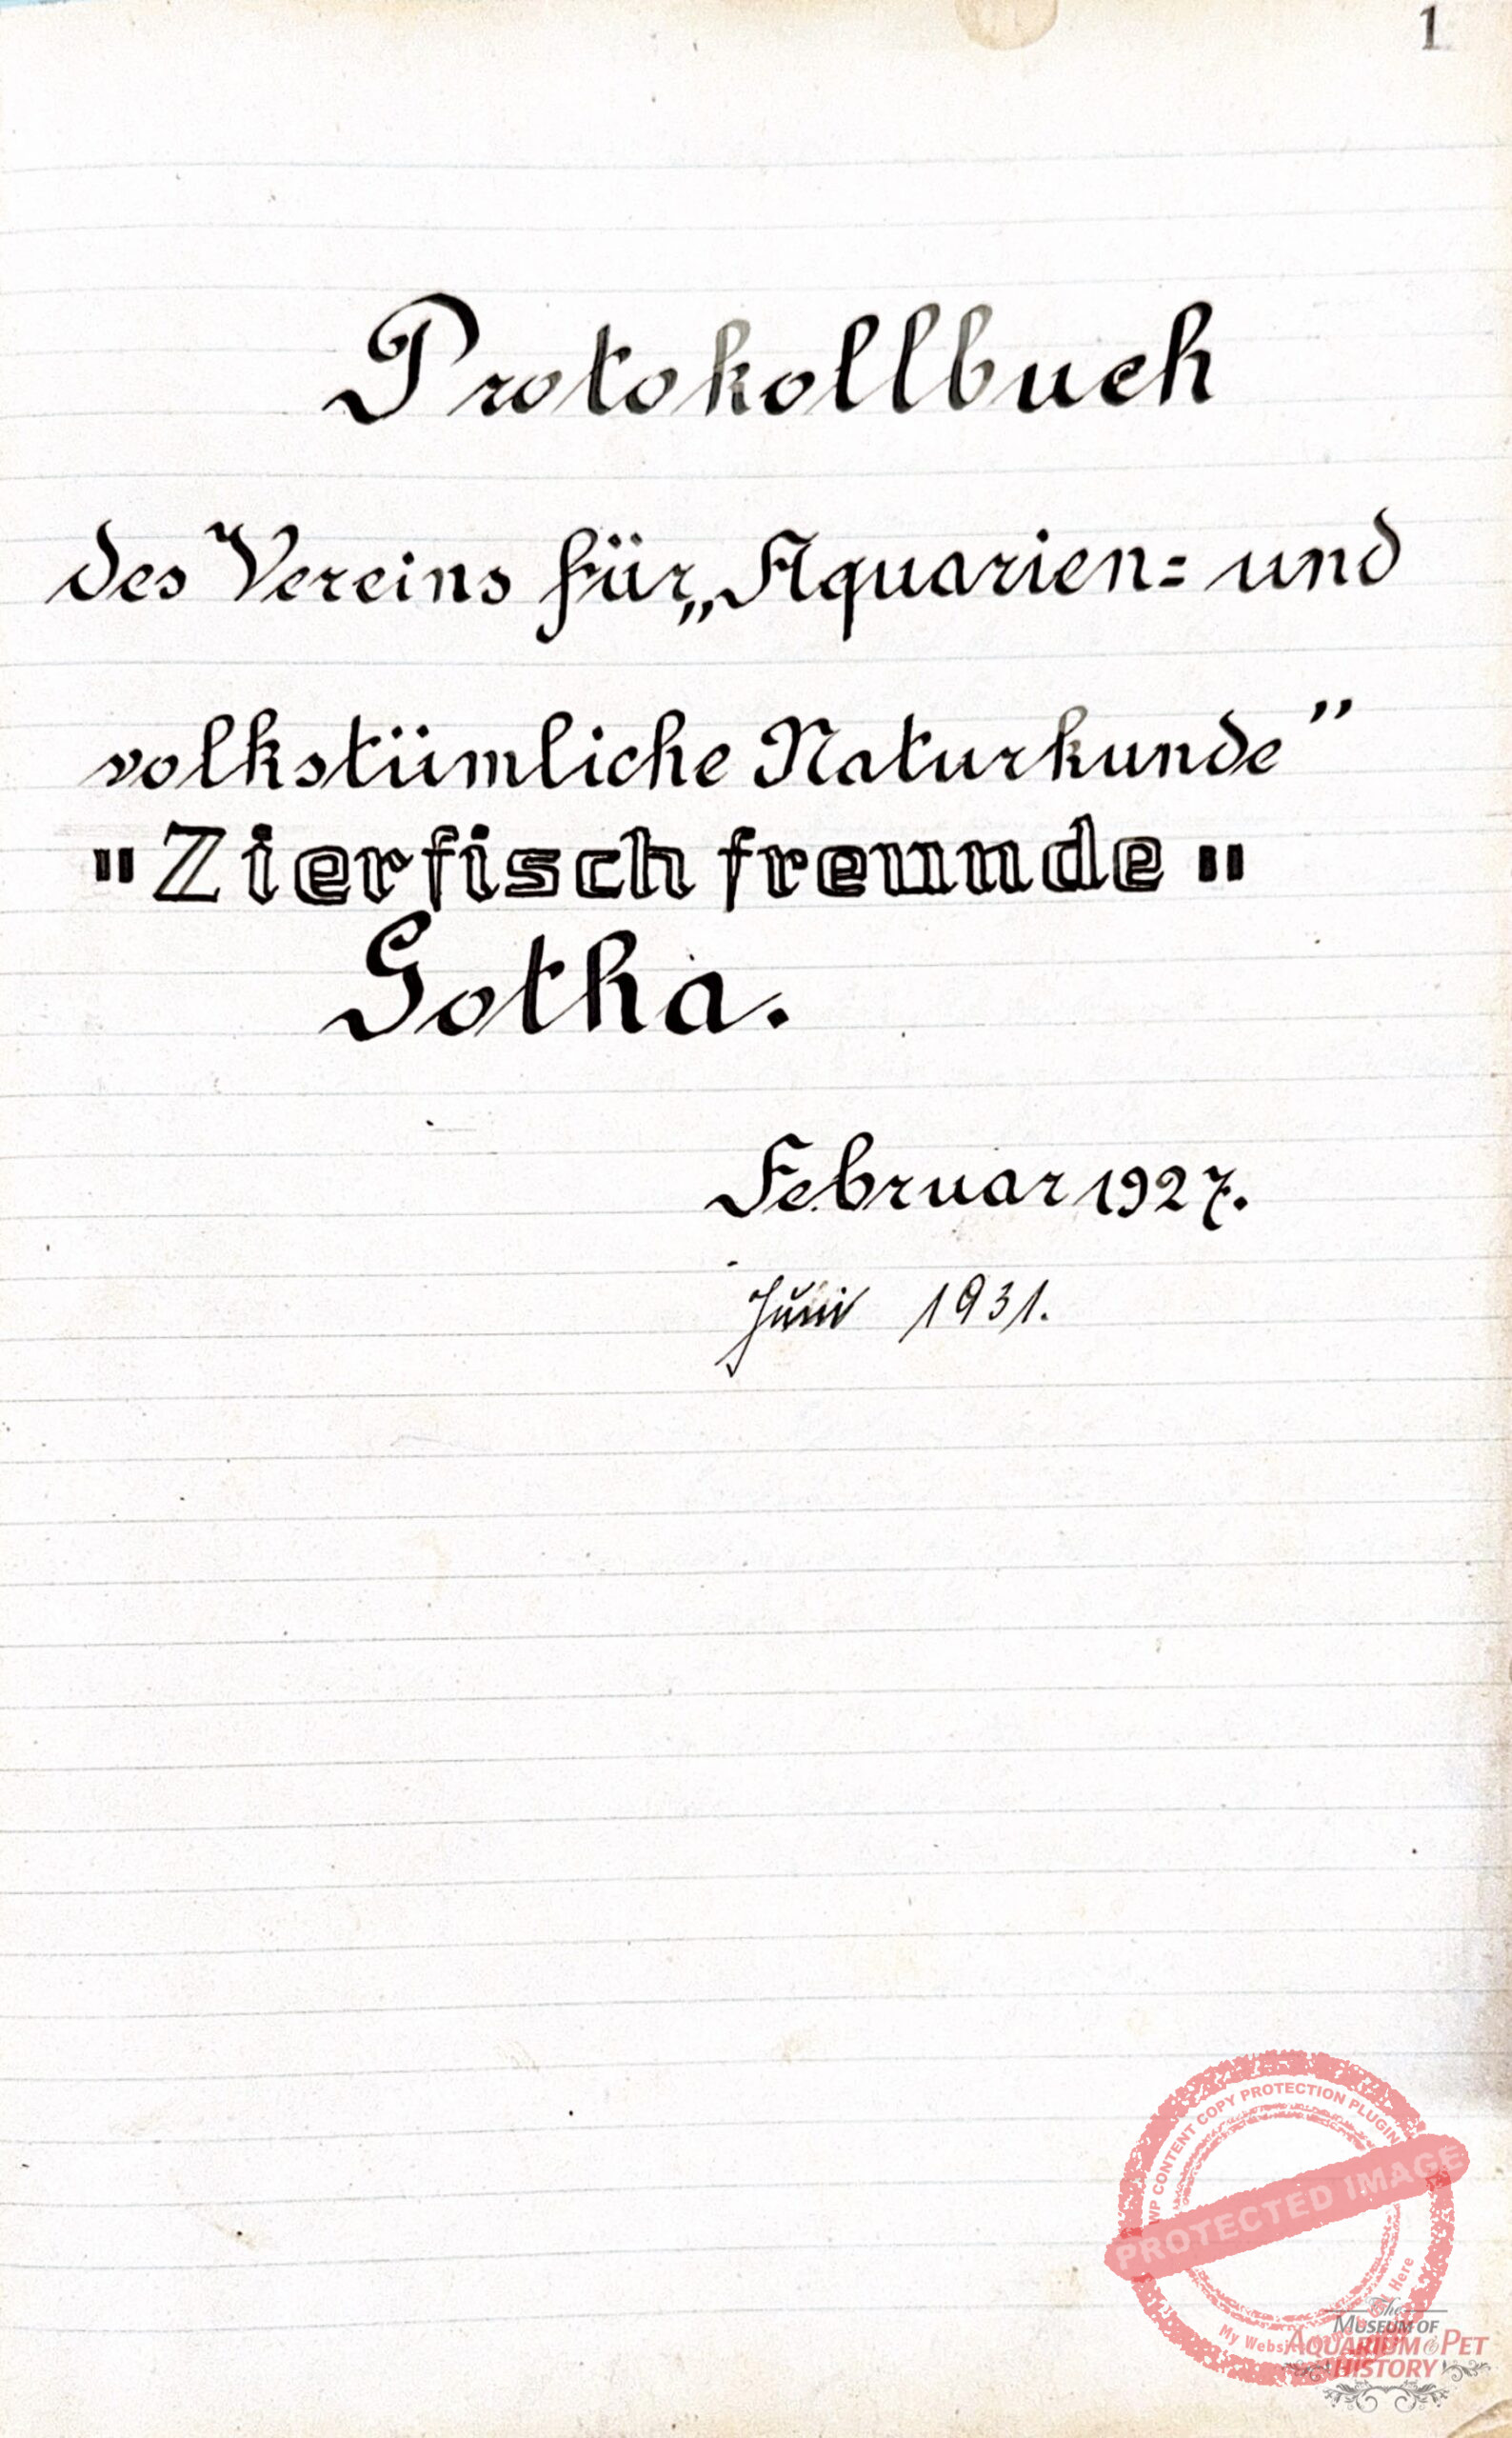 1
Protokollbuch
des Vereins für „Aquarien= und
volkstümliche Naturkunde"
"Zierfischfreunde"
Gotha.
Februar 1927.
Juni 1931.
WP CONTENT COPY PROTECTION PLUGIN
PROTECTED IMAGE
My Website Here
The
MUSEUM OF
AQUARIUM & PET
HISTORY